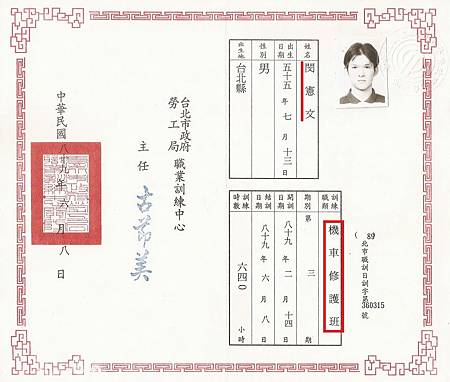 （89）北市職訓日訓字第360315號
姓名 閔憲文
出生日期 五十五年七月十三日
性別 男
出生地 台北縣
訓練職類 機車修護班
期別 第三期
開訓日期 八十九年二月十四日
結訓日期 八十九年六月八日
訓練時數 六四〇小時
台北市政府勞工局 職業訓練中心
主任 古節美
中華民國八十九年六月八日